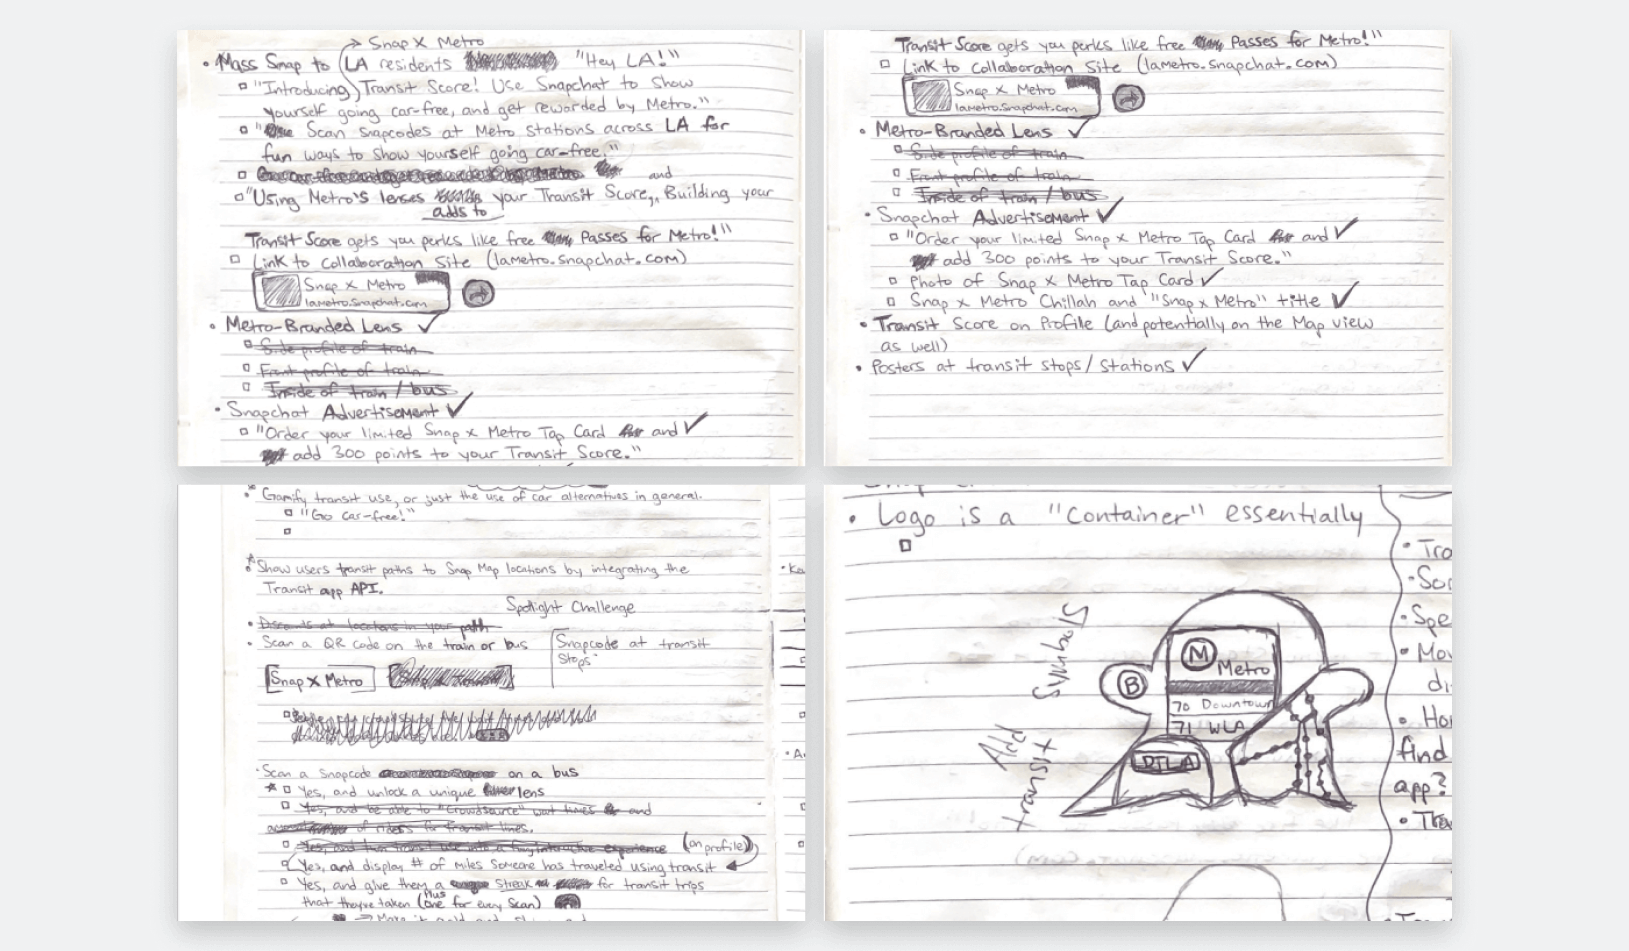 → Snap X Metro
• Mass Snap to LA residents "Hey LA!"
"Introducing Transit Score! Use Snapchat to show
yourself going car-free, and get rewarded by Metro."
" Scan Snapcodes at Metro Stations across LA for
fun ways to show yourself going car-free."
and
"Using Metro's lenses your Transit Score,, Building your
adds to
Transit Score gets you perks like free Passes for Metro!"
Link to Collaboration Site (lametro.snapchat.com)
Snap X Metro
lametro.snapchat.com
• Metro-Branded Lens ✓
Side profile of train
Front profile of train
Inside of train / bus
• Snapchat Advertisement ✓
"Order your limited Snap x Metro Tap Card and ✓
add 300 points to your Transit Score."
Transit Score gets you perks like free Passes for Metro!"
Link to Collaboration Site (lametro.snapchat.com)
Snap X Metro
lametro.snapchat.com
• Metro-Branded Lens ✓
Side profile of train
Front profile of train
Inside of train / bus
• Snapchat Advertisement ✓
"Order your limited Snap x Metro Tap Card and ✓
add 300 points to your Transit Score."
Photo of Snap x Metro Tap Card ✓
Snap x Metro Chillah and "Snap x Metro" title ✓
• Transit Score on Profile (and potentially on the Map view
as well)
• Posters at transit stops/Stations ✓
• Gamify transit use, or just the use of car alternatives in general.
"Go car-free!"
• Show users transit paths to Snap Map locations by integrating the
Transit app API.
Spotlight Challenge
• in your path
• Scan a QR code on the train or bus
Snapcode at transit
Stops
Snap X Metro
• Scan a Snapcode on a bus
* Yes, and unlock a unique lens
Yes, and be able to "Crowdsource" wait times and
of riders for transit lines.
Yes, and turn transit use into a fun, interactive experience
(on profile)
Yes, and display # of miles someone has traveled using transit
Yes, and give them a Streak for transit trips
that they've taken (Plus one for every Scan)
• Logo is a "Container" essentially
Add
transit
Symbols
M
Metro
B
70 Downtown
71 WLA
DTLA
• Tra
• Soc
• Spe
• Mov
di
• Ho
find
app?